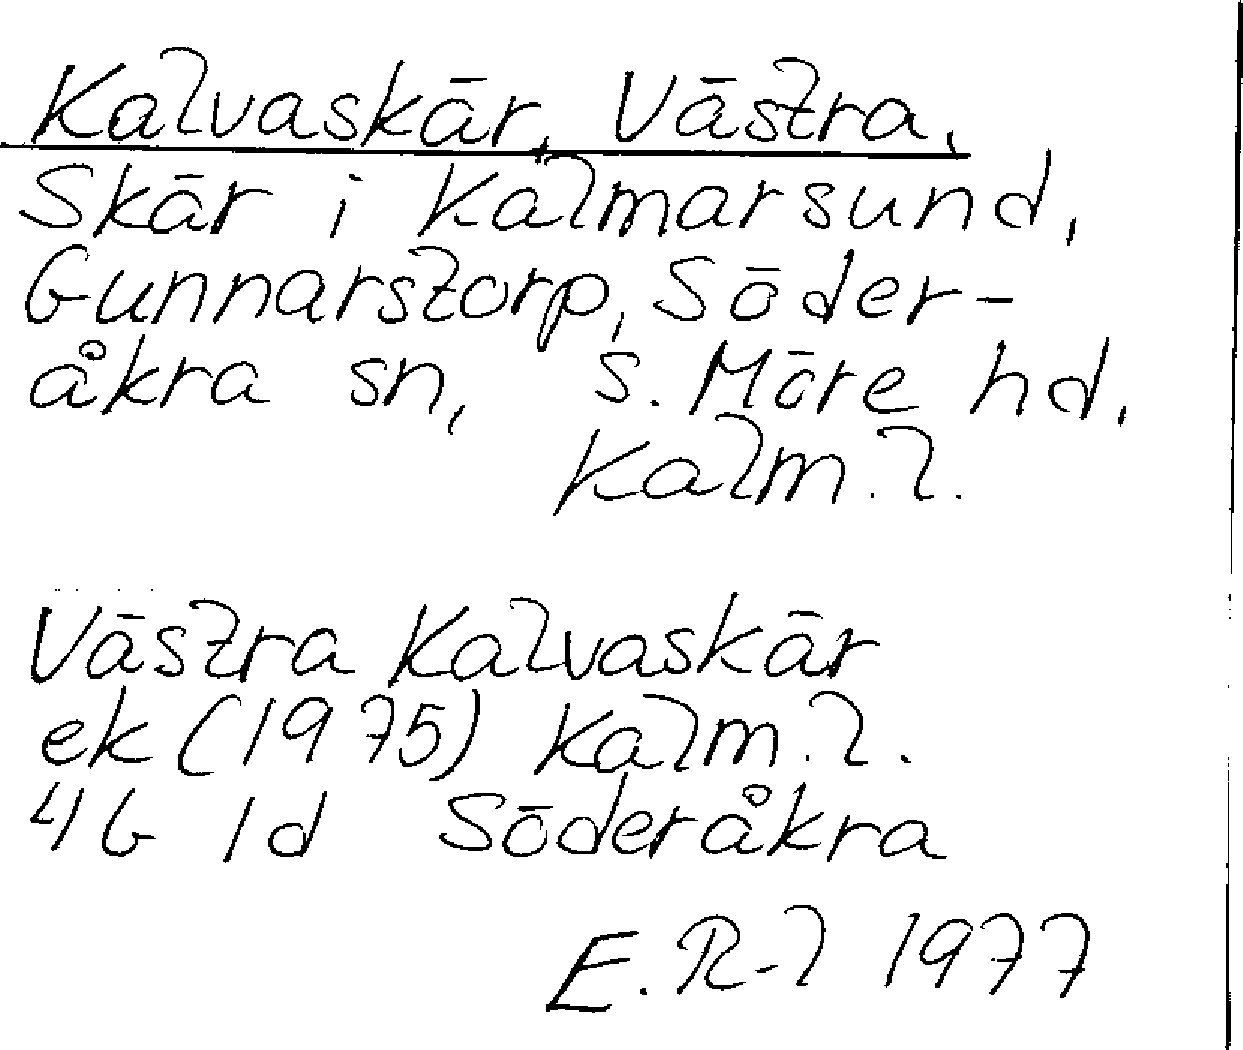 Kalvaskär, Västra,
Skär i Kalmarsund,
Gunnarstorp, Söder-
åkra sn, S. Möre hd,
Kalm. l.
Västra Kalvaskär
ek (1975) Kalm. l.
4G 1d Söderåkra
E. R-l 1977